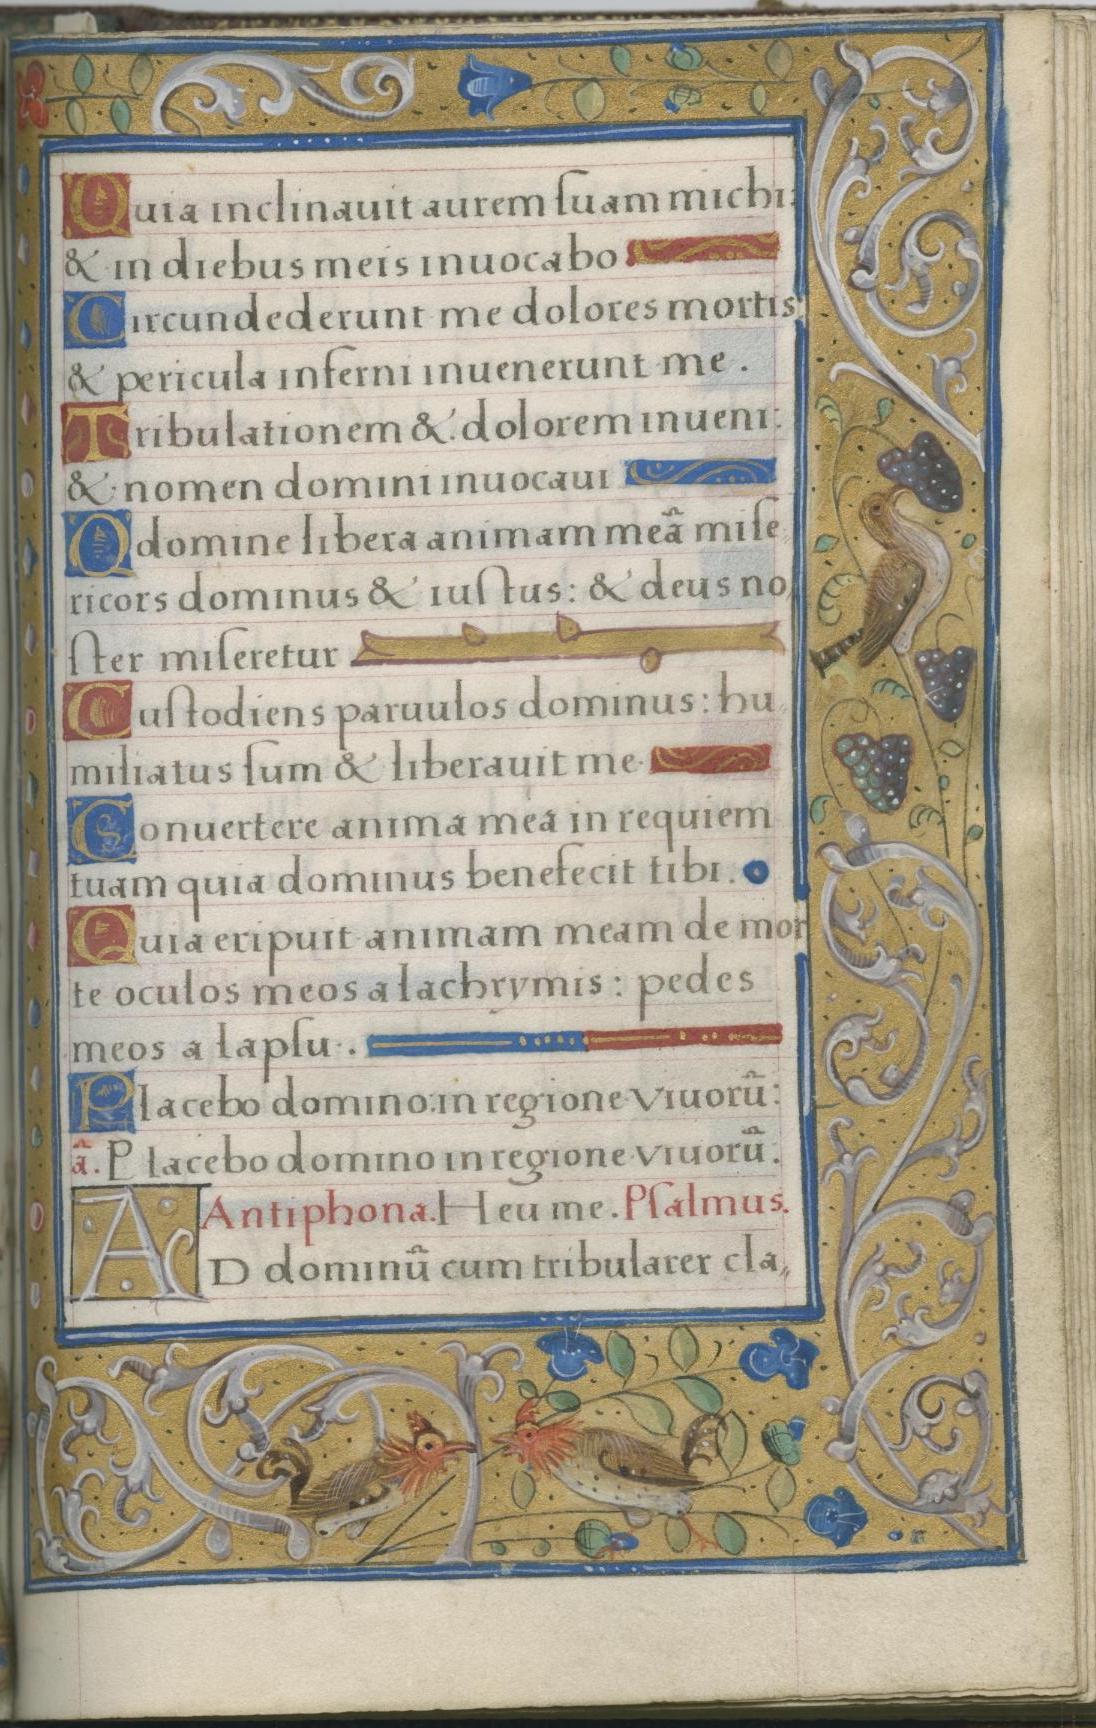 Quia inclinauit aurem ſuam michi:
& in diebus meis inuocabo
Circundederunt me dolores mortis:
& pericula inferni inuenerunt me.
Tribulationem & dolorem inueni:
& nomen domini inuocaui
O domine libera animam meã miſe,
ricors dominus & iuſtus: & deus no,
ſter miſeretur
Cuſtodiens paruulos dominus: hu,
miliatus ſum & liberauit me.
Conuertere anima mea in requiem
tuam quia dominus benefecit tibi.
Quia eripuit animam meam de mor
te oculos meos a lachrymis: pedes
meos a lapſu.
Placebo domino: in regione viuorũ:
ã. Placebo domino in regione viuorũ:
Antiphona. Heu me. Pſalmus.
AD dominũ cum tribularer cla,